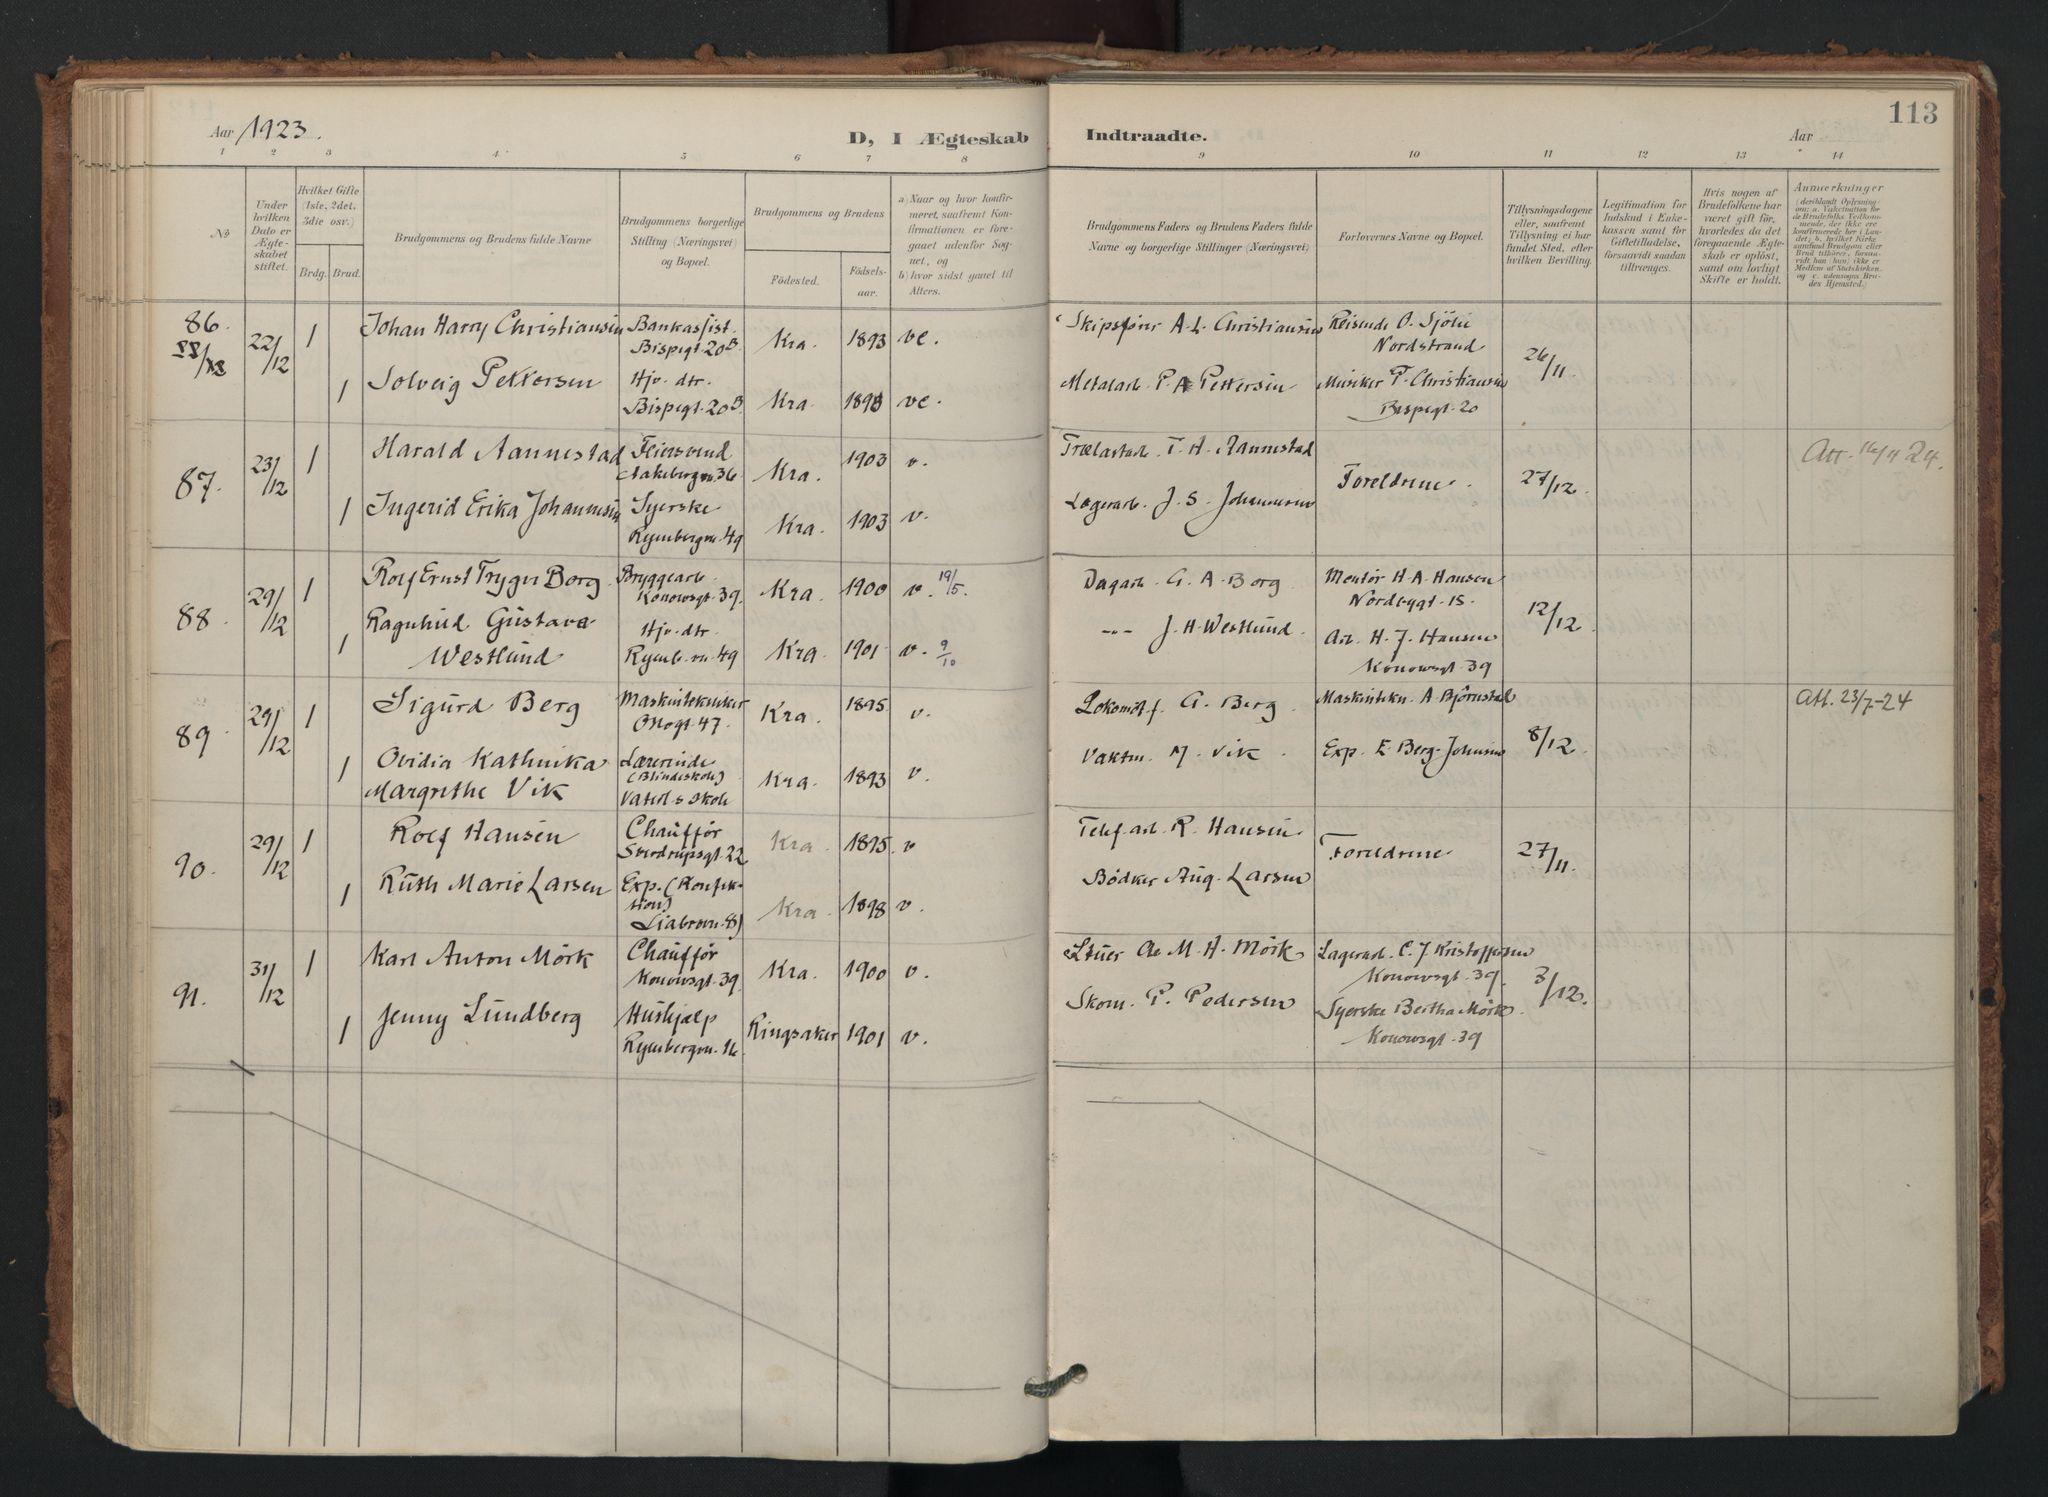 Aar 1923.
D, I Ægteskab Indtraadte.
Aar
113
1 2 3 4 5 6 7 8 9 10 11 12 13 14
No
Under hvilken Dato er Ægteskabet stiftet.
Hvilket Gifte (1ste, 2det, 3die osv.)
Brdg. Brud.
Brudgommens og Brudens fulde Navne
Brudgommens borgerlige Stilling (Næringsvei) og Bopæl.
Brudgommens og Brudens
Fødested. Fødselsaar.
a) Naar og hvor konfirmeret, saafremt Konfirmationen er foregaaet udenfor Sognet, og
b) hvor sidst gaaet til Alters.
Brudgommens Faders og Brudens Faders fulde Navne og borgerlige Stillinger (Næringsvei)
Forlovernes Navne og Bopæl.
Tillysningsdagene eller, saafremt Tillysning ei har fundet Sted, efter hvilken Bevilling.
Legitimation for Indskud i Enkekassen samt for Giftetilladelse, forsaavidt saadan tiltrænges.
Hvis nogen af Brudefolkene har været gift før, hvorledes da det foregaaende Ægteskab er opløst, samt om lovligt Skifte er holdt.
Anmærkninger
86. 22/12 1 Johan Harry Christiansen Bankassist. Bispegt. 20B Kra. 1893 ve. Skipsfører A. L. Christiansen Reisende O. Sjölie Nordstrand 26/11.
1 Solveig Pettersen Hjv. dtr. Bispegt. 20B Kra. ve. Metalarb. P. A. Pettersen Musiker F. Christiansen Bispegt. 20
87. 23/12 1 Harald Aannestad Feiersvend Aakebergvn. 36 Kra. 1903 v. T. H. Aannestad Foreldrene. 27/12. Att. 24.
1 Ingerid Erika Johannesen Syerske Ryenbergvn. 49 Kra. 1903 v. Lagerarb. J. S. Johannesen
88. 29/12 1 Rolf Ernst Trygve Borg Bryggearb. Konowsgt. 39. Kra. 1900 v. 19/5. Dagarb. G. A. Borg Montør H. A. Hansen Nordbygt. 15. 12/12.
1 Ragnhild Gustava Westlund Hjv. dtr. Ryenb. vn. 49 Kra. 1901 v. 9/10 -"- J. H. Westlund. Arb. H. J. Hansen Konowsgt. 39
89. 29/12 1 Sigurd Berg Maskintekniker Oslogt. 47. Kra. 1895 v. Lokomotf. G. Berg Maskintekn. A Bjørnstad 8/12. Att. 23/7-24
1 Ovidia Kathinka Margrethe Vik Lærerinde (Blindeskole) Kra. 1893 v. Vaktm. M. Vik Exp. E. Berg-Johnsen
90. 29/12 1 Rolf Hansen Chauffør Sverdrupsgt. 22 Kra. 1895 v Telef. arb. R. Hansen. Foreldrene 27/11.
1 Ruth Marie Larsen Exp. (Konfektion) Kra. 1898 v. Bødker Aug. Larsen
91. 31/12 1 Karl Anton Mörk Chauffør Konowsgt. 39 Kra. 1900 v. Stuer M. H. Mörk Lagerarb. C. J. Kristoffersen Konowsgt. 39 3/12.
1 Jenny Lundberg Hushjælp Ryenbergvn. 16 Ringsaker 1901 v. Skom. P. Pedersen Syerske Bertha Mörk Konowsgt. 39